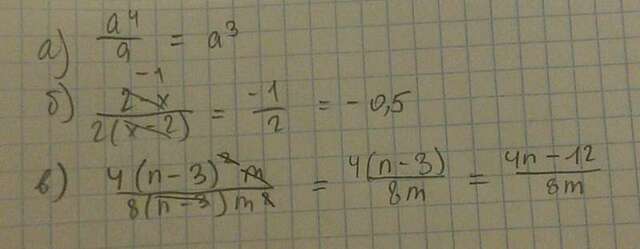 а) a⁴/a = a³
б) 2-x/2(x-2) = -1/2 = -0,5
в) 4(n-3)²m/8(n-3)m² = 4(n-3)/8m = 4n-12/8m